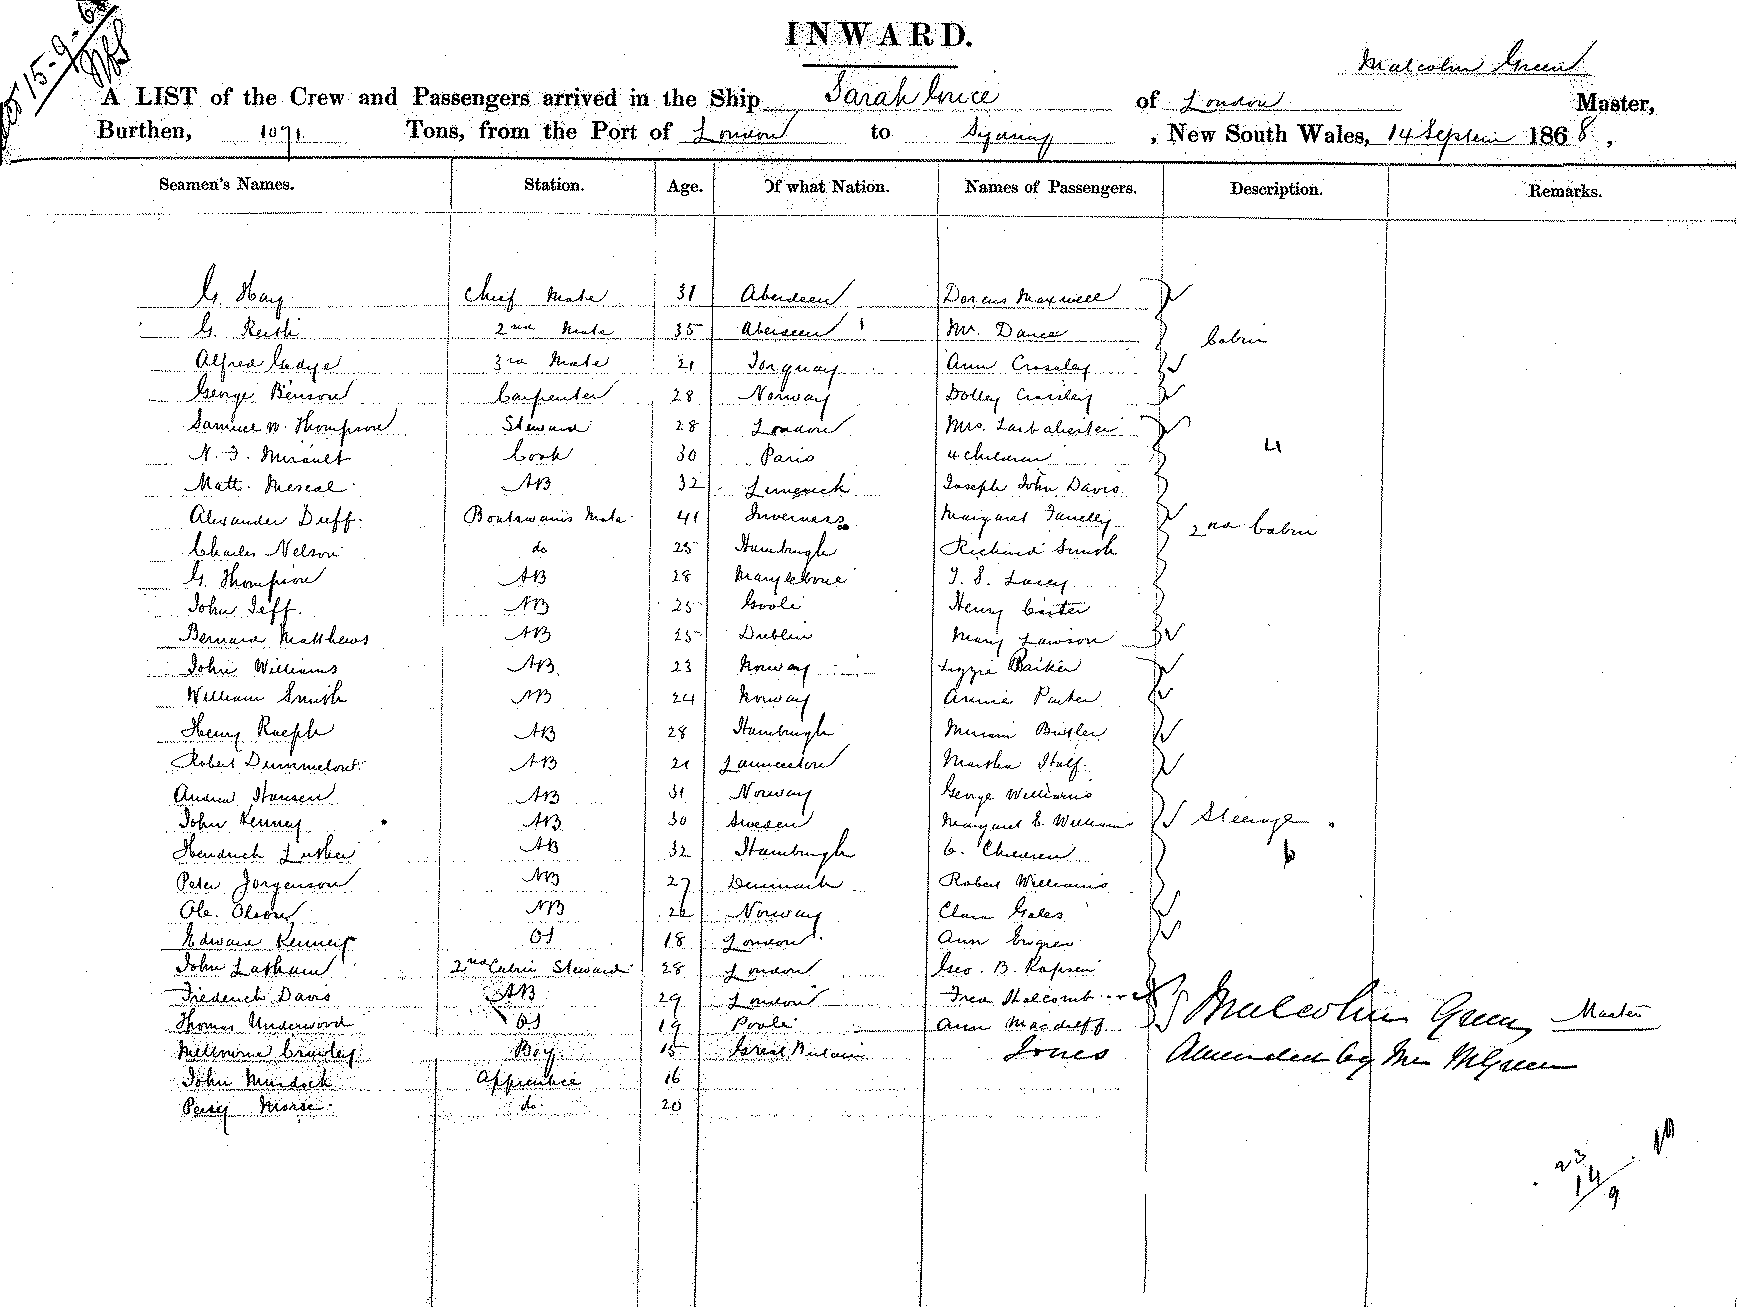 15-9-68
INWARD.
Malcolm Green
A LIST of the Crew and Passengers arrived in the Ship Sarah Grice of London Master,
Burthen, 1071 Tons, from the Port of London to Sydney, New South Wales, 14 Septem 1868.
Seamen's Names. Station. Age. Of what Nation. Names of Passengers. Description. Remarks.
G. Hay Chief Mate 31 Aberdeen Dorcas Maxwell
G. Keith 2nd Mate 35 Aberdeen Mr. Dance Cabin
Alfred Gedye 3rd Mate 21 Torquay Ann Crossley
George Benson Carpenter 28 Norway Dolley Crossley
Samuel W. Thompson Steward 28 London Mrs.
N. J. Cook 30 Paris 4 Children 4
Matt. AB 32 Limerick Joseph John Davis
Alexander Duff. Boatswains Mate 41 Inverness Margaret 2nd Cabin
Charles Nelson do 25 Hamburgh Richard Smith
G. Thompson AB 28 Marylebone
John Jeff. AB 25 Goole Henry Carter
Bernard Matthews AB 25 Dublin Mary Lawson
John Williams AB 23 Norway Lizzie Barker
William Smith AB 24 Norway Annie Parker
Henry AB 28 Hamburgh Miriam Butler
Robert AB 21 Launceston Martha
Andrew Hansen AB 31 Norway George Williams
John Kenney AB 30 Sweden Margaret E. Williams Steerage
Hendrick Luther AB 32 Hamburgh 6. Children 6
Peter Jorgenson AB 27 Denmark Robert Williams
Ole. Olson AB Norway Clara Gales
Edward Kenney OS 18 London Ann
John Latham 2nd Cabin Steward 28 London Geo. B.
Frederick Davis AB 29 London Fred Holcomb
Thomas Underwood OS 19 Poole Ann Macduff Malcolm Green Master
Melbourne Crawley Boy 15 Great Britain Jones Amended by Me MGreen
John Murdock Apprentice 16
Percy Morse do. 20
14/9